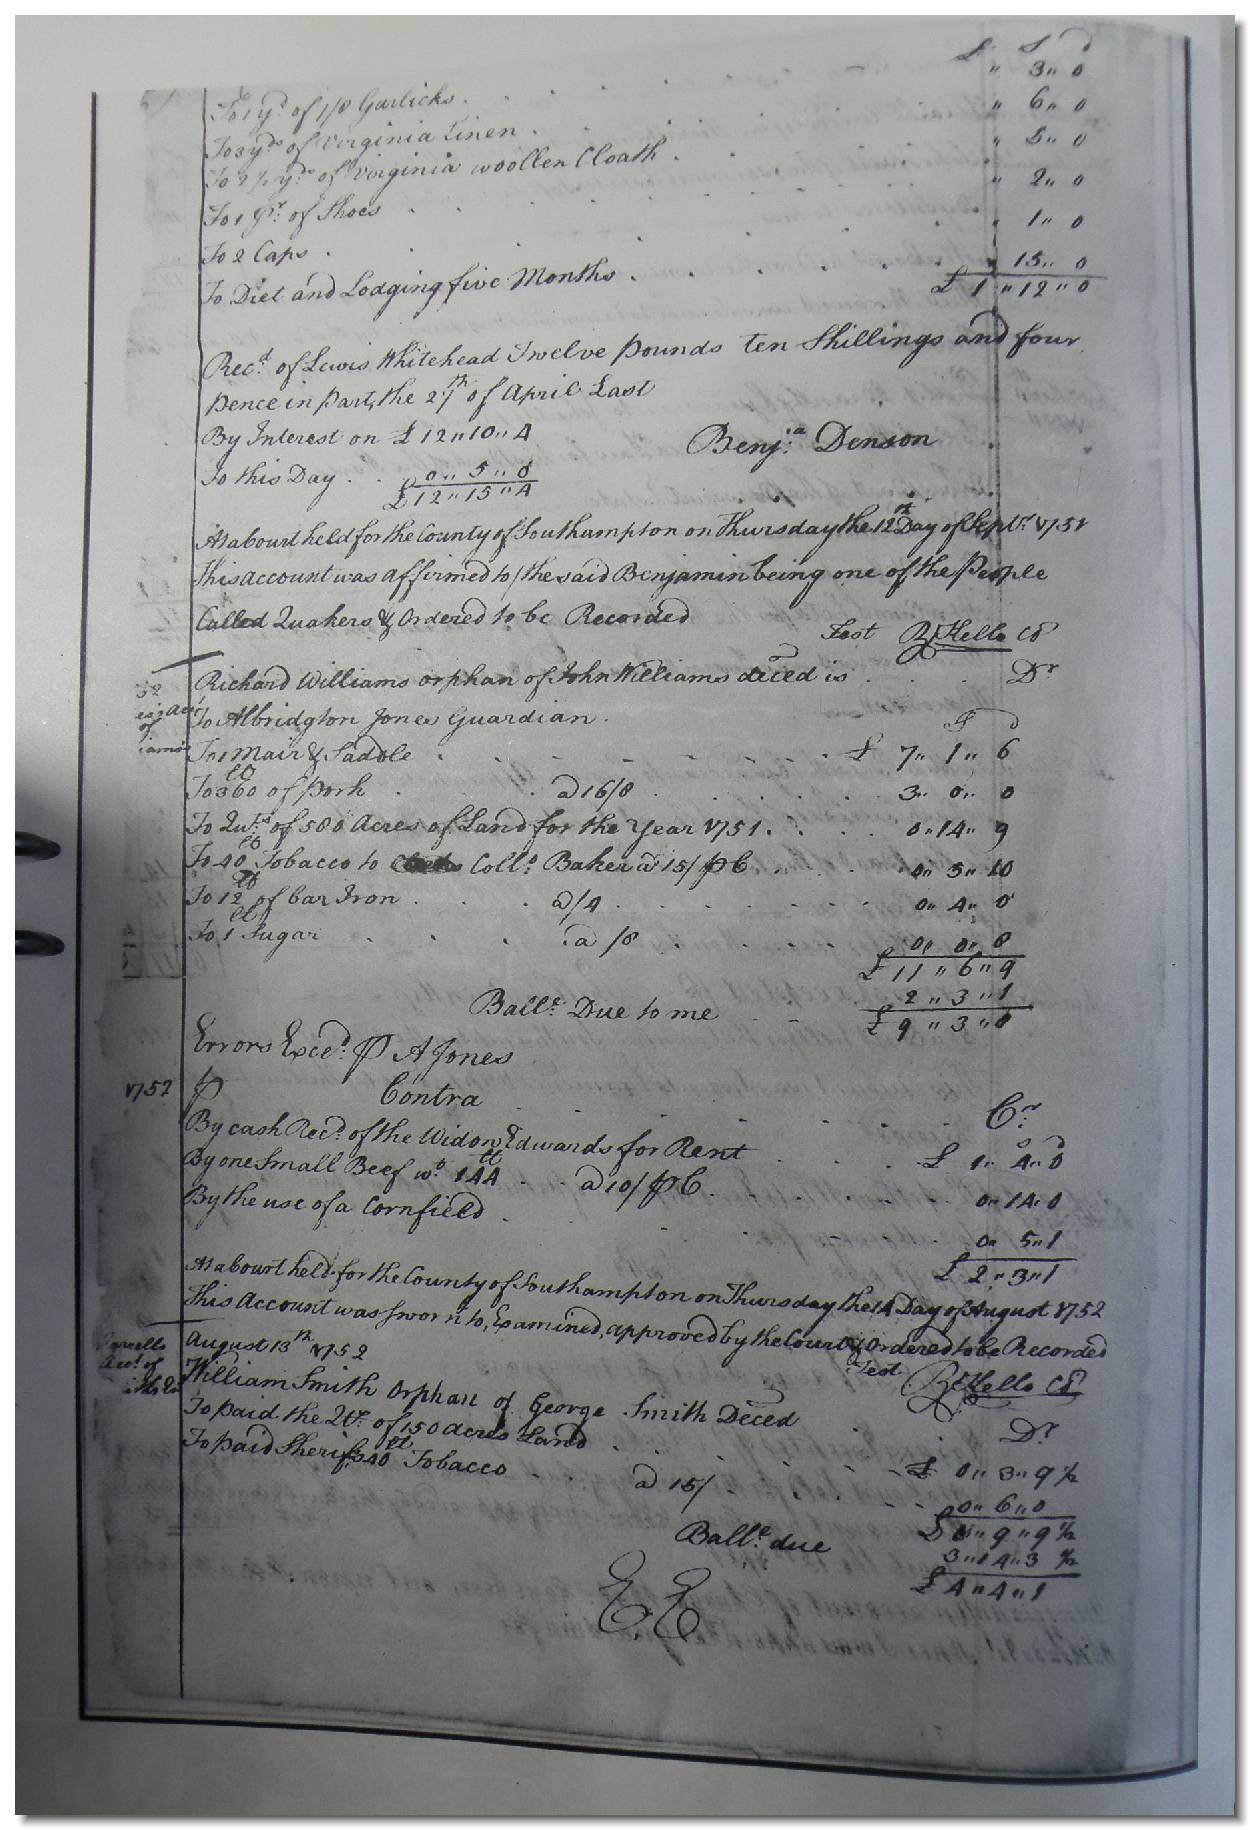 £ S d
To 1 yd. of 1/8 Garlicks . . . . " 3" 0
To 3 yds of Virginia Linen . . . " 6" 0
To 2 1/2 yds of Virginia woollen Cloath . . " 5" 0
To 1 pr. of Shoes . . . . " 2" 0
To 2 Caps . . . . 1" 0
To Diet and Lodging five Months . . . . " 15" 0
£ 1 " 12 " 0
Recd. of Lewis Whitehead Twelve pounds ten Shillings and four
pence in part, the 27th of April Last
By Interest on £ 12" 10" 4
Benja. Denson
To this Day . . 0" 5" 0
£ 12" 15" 4
At a Court held for the County of Southampton on Thursday the 12th Day of Septr. 1751
This account was affirmed to / the said Benjamin being one of the People
Called Quakers & Ordered to be Recorded
Test R Kello CC
Richard Williams orphan of John Williams deced is . . . Dr
To Albridgton Jones Guardian . S d
To 1 Mair & Saddle . . . . £ 7" 1" 6
To 360 lb of pork . . a 16/8 . . . . 3" 0" 0
To Qutts. of 580 Acres of Land for the Year 1751 . . . . 0" 14" 9
To 40 lb Tobacco to Coll. Baker a 15/ ⅌ C . . . 0" 5" 10
To 12 lb of bar Iron . . . a /4 . . . . 0" 4" 0
To 1 lb Sugar . . . . a /8 . . . . 0" 0" 8
£ 11 " 6 " 9
2 " 3 " 1
Balle. Due to me . . £ 9 " 3 " 8
Errors Exced. ⅌ A Jones
1752 ⅌ Contra . . . . Cr.
S d
By cash Recd. of the Widow Edwards for Rent . . . £ 1" 4" 0
By one Small Beef wt. 144 lb . . a 10/ ⅌ C . . . 0" 14" 0
By the use of a Cornfield . . . 0" 5" 1
£ 2" 3" 1
At a Court held for the County of Southampton on Thursday the 14 Day of August 1752
This Account was Sworn to, Examined, approved by the Court & Ordered to be Recorded
Test R Kello CC
August 13th 1752
William Smith Orphan of George Smith Deced . . Dr.
To paid the Qtr. of 150 acres Land . . . . £ 0" 3" 9 1/2
To paid Sheriff 40 lb Tobacco a 15/ . . . . 0" 6" 0
£ 0" 9" 9 1/2
Balle. due 3" 14" 3 1/2
£ 4" 4" 1
E. E